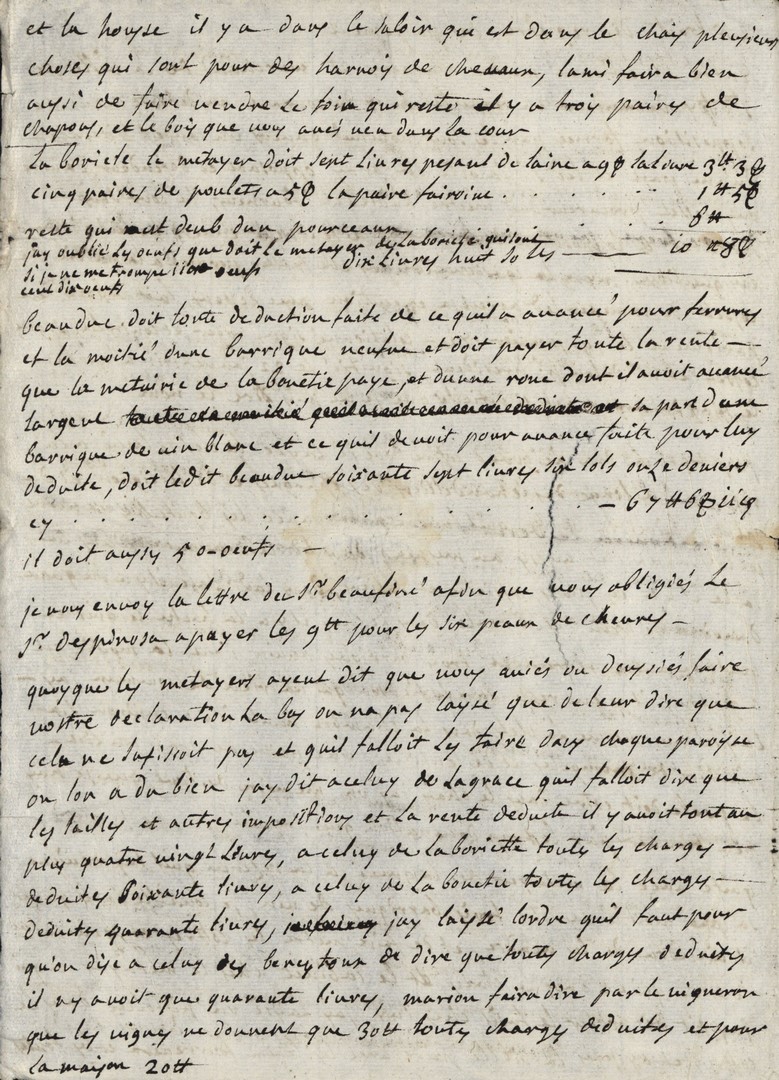 et la housse il y a dans le saloir qui est dans le chais plusieurs
choses qui sont pour des harnois de chevaux, lami faira bien
aussi de faire vendre le foin qui reste il y a trois paires de
chapons, et le bois que vous avés veu dans la cour
la boriete le metayer doit sept livres pesant de laine a 9 s la livre 3 tt 3 s
cinq paires de poulets a 5 s la paire fairoine . . . . . . 1 tt 5 s
reste qui mest deub dun pourceau . . . . . . 6 tt
dix livres huit sols —— 10 tt 8 s
jay oublié les oeufs que doit le metayer de la boriete qui sont
si je ne me trompe oeufs
cent dix oeufs
beauduc doit toute deduction faite de ce quil a avancé pour ferrures
et la moitié dune barrique neufue et doit payer toute la rente —
que la metairie de la bouetie paye, et dune roue dont il avoit avancé
largent sa part dune
barrique de vin blanc et ce quil devoit pour avance faite pour luy
deduite, doit ledit beauduc soixante sept livres six sols onze deniers
cy . . . . . . . . . . — 67 tt 6 s 11 d
il doit aussy 50 - oeufs —
je vous envoy la lettre du Sr. beaufiné afin que vous obligiés le
Sr. despinosa a payer les 9 tt pour les six peaux de chevres —
quoyque les metayers ayent dit que vous aviés ou deussiés faire
vostre declaration la bas on na pas laissé que de leur dire que
cela ne sufissoit pas et quil falloit les faire dans chaque paroisse
ou lon a du bien jay dit a celuy de Lagrace quil falloit dire que
les tailles et autres impositions et la rente deduite il y avoit tout au
plus quatre vingt livres, a celuy de la boriette toutes les charges —
deduites soixante livres, a celuy de la bouetie toutes les charges —
deduites quarante livres, jay laissé lordre quil faut pour
qu'on dise a celuy des de dire que toutes charges deduites
il ny avoit que quarante livres, marion faira dire par le vigneron
que les vignes ne donnent que 30 tt toutes charges deduites et pour
la maison 20 tt